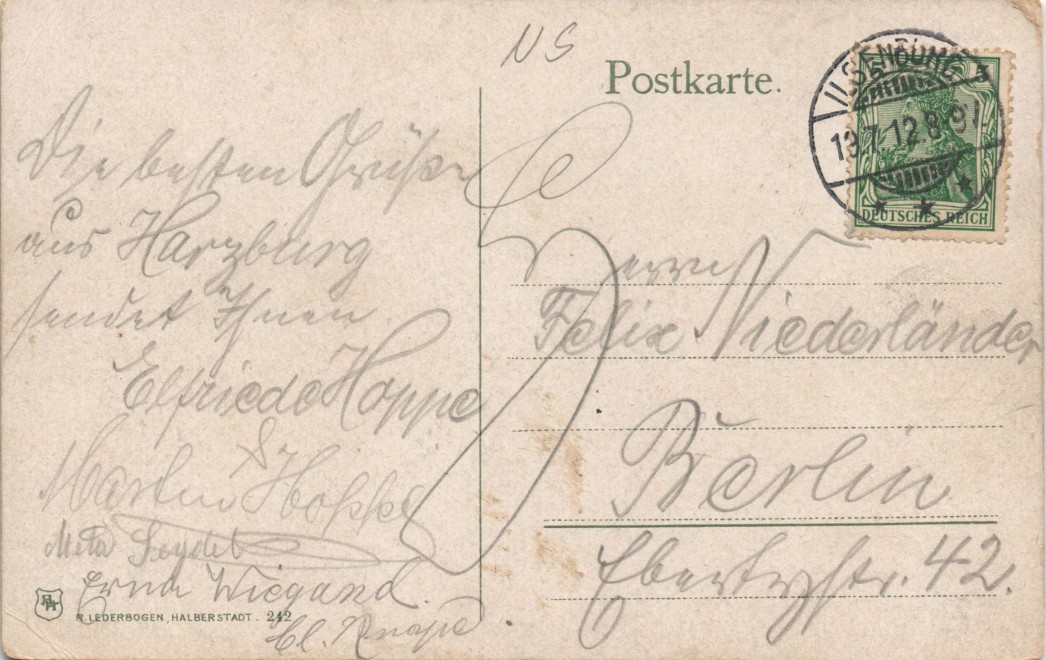 NS
Postkarte.
ILSENBURG
13.7.12.8-9V
DEUTSCHES REICH
Die besten Grüße
aus Harzburg
sendet Ihnen
Elfriede Hoppe
Martin Hoppe
Meta Seydel
Erna Wiegand.
Herrn
Felix Niederländer
Berlin
Ebertystr. 42.
R. LEDERBOGEN, HALBERSTADT. 242